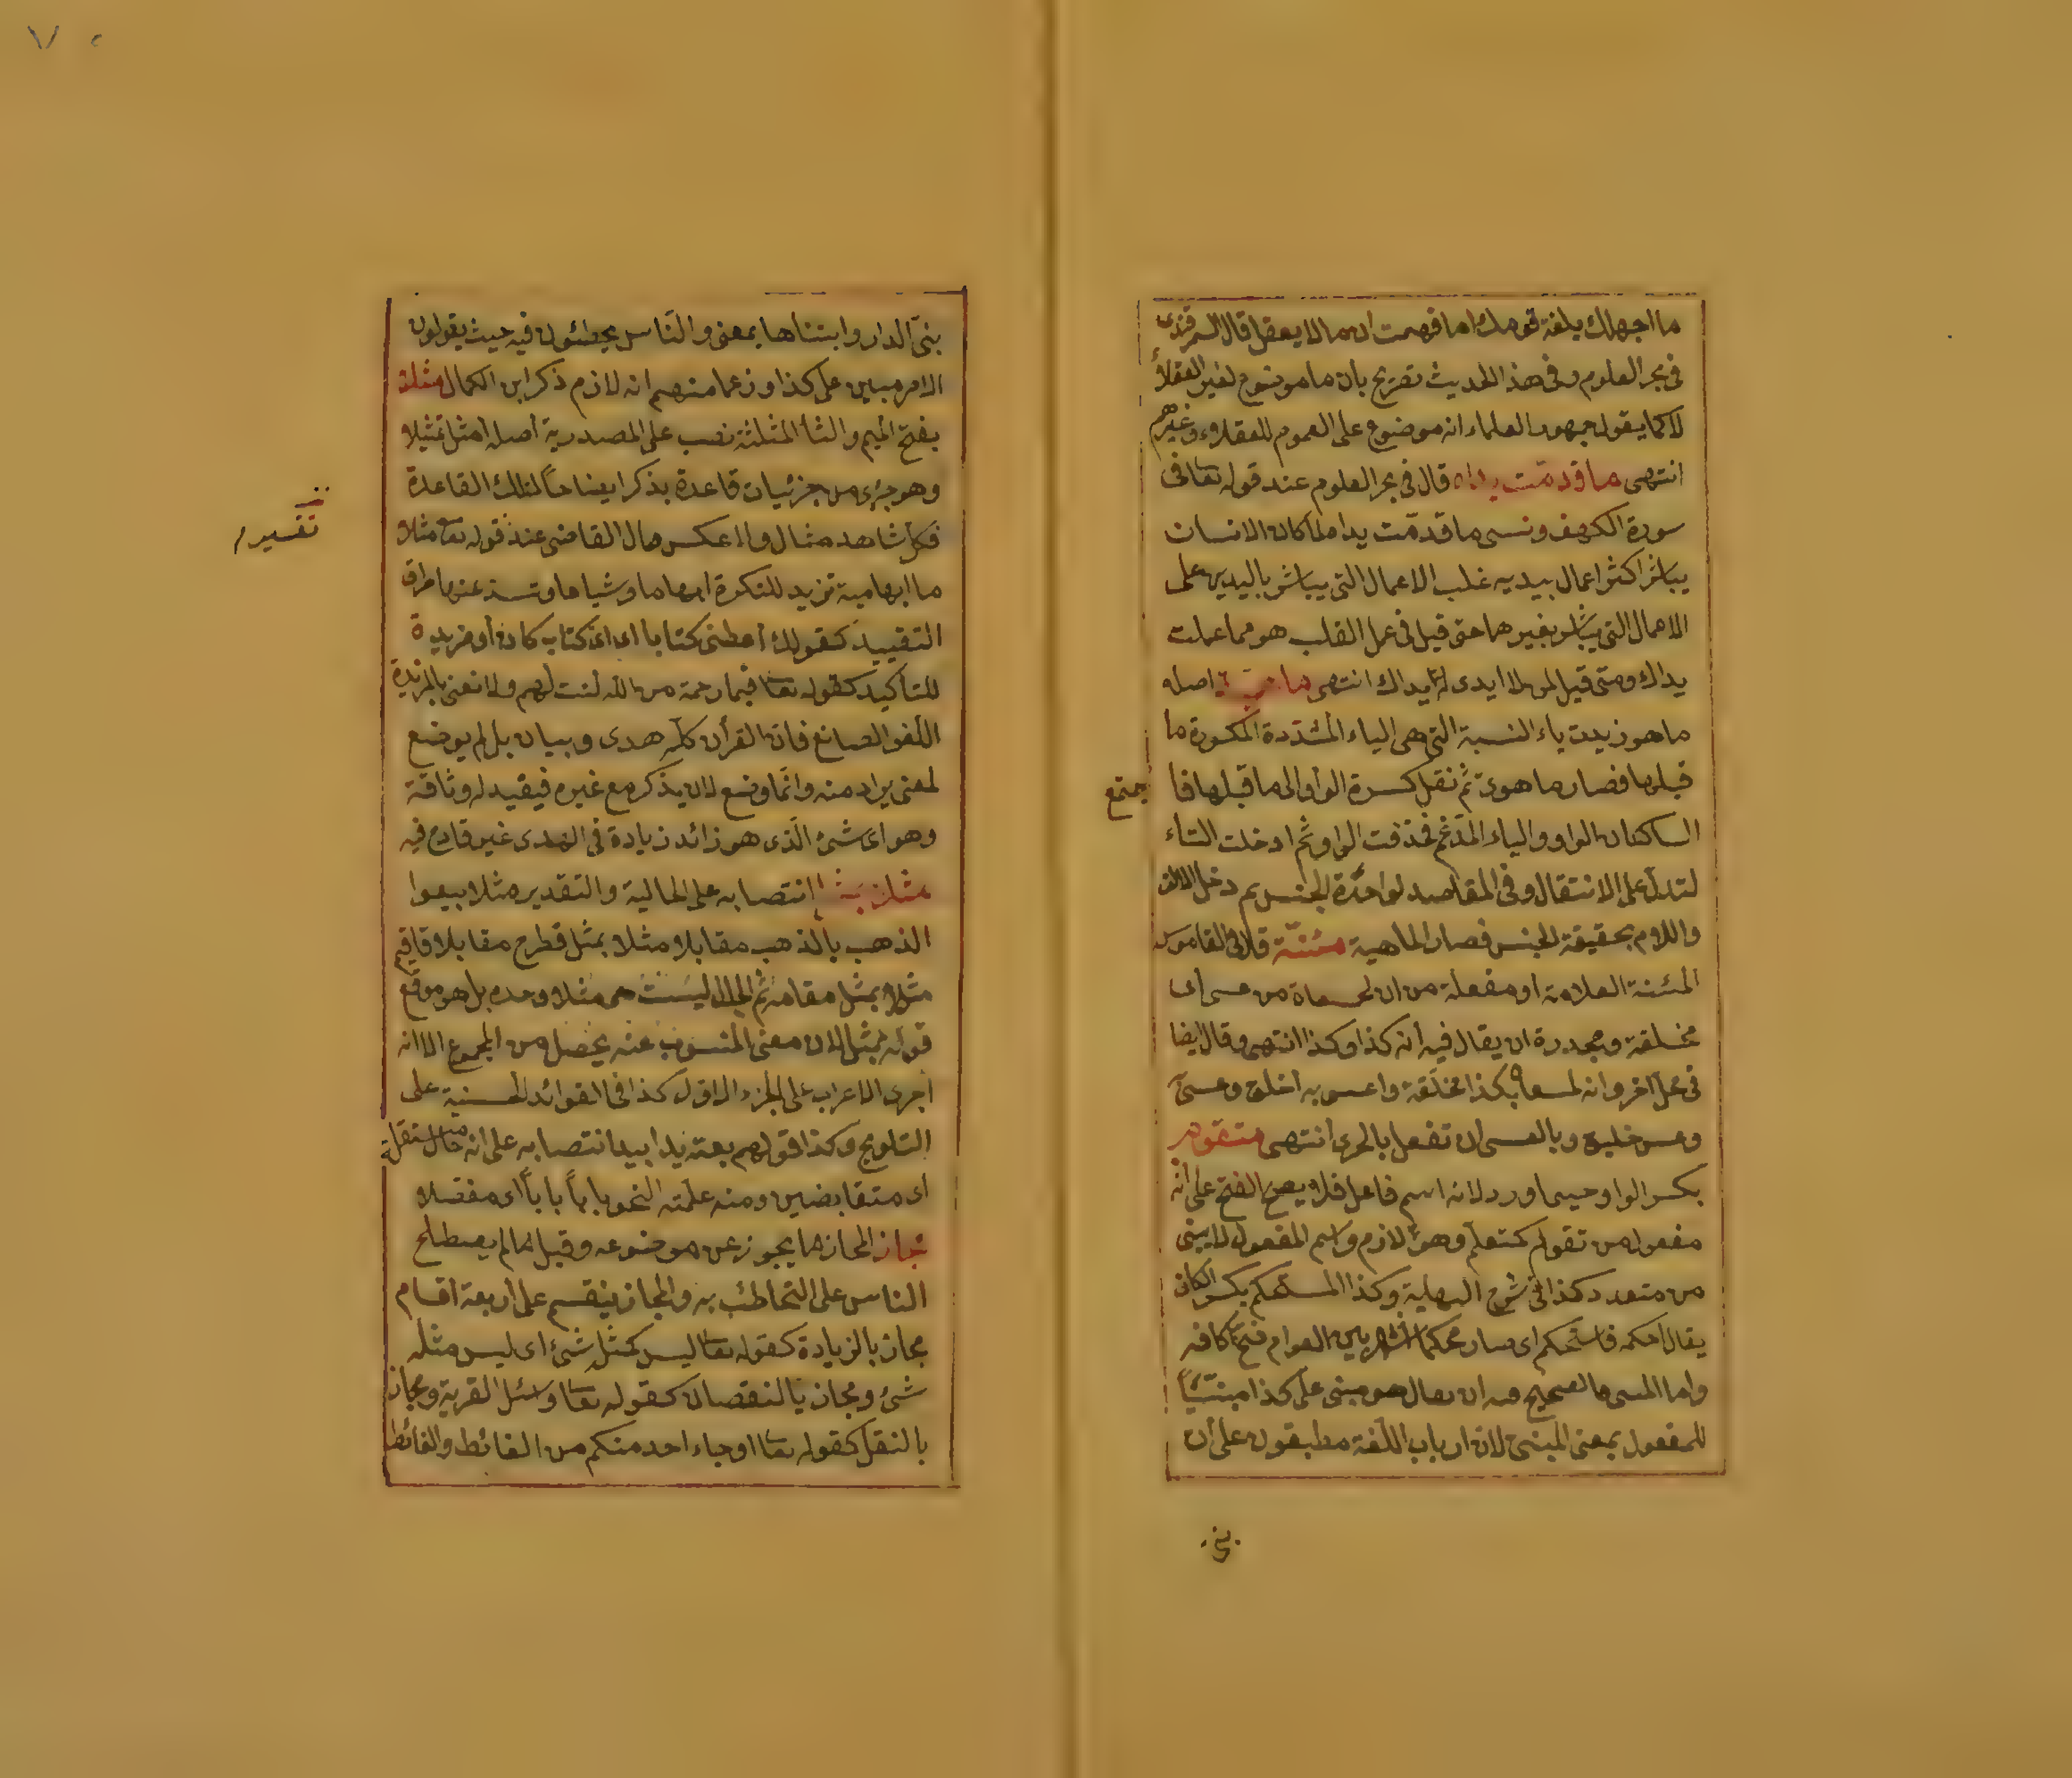 ما اجهلك بلغة قومك اما فهمت ان ما لا يعقل قال السمرقندى
فى بحر العلوم وفى هذا الحديث تصريح بان ما موضوع لغير العقلاء
لا كما يقول جمهور العلماء انه موضوع على العموم للعقلاء وغيرهم
انتهى ما قدمت يداه قال فى بحر العلوم عند قوله تعا فى
سورة الكهف ونسى ما قدّمت يداه لما كان الانسان
يباشر اكثر اعمال بيديه غلب الاعمال التى يباشر باليدين على
الاعمال التى يباشر بغيرها حتى قيل فى عمل القلب هو مما عملت
يداك وحتى قيل لمن لا ايدى له يداك انتهى اصله
ما هو زيدت ياء النسبة التى هى الياء المشدّدة المكسورة ما
قبلها فصار ما هوىّ ثم نقل كسرة الواو الى ما قبلها فا
جتمع
الساكنان الواو والياء المدغم فحذفت الواو ثم ادخلت التاء
لتدل على الانتقال وفى المقاصد لواحدة الجنس ثم دخل الالف
واللام بحقيقة الجنس فصار الماهية مئنّة قال فى القاموس
المئنة العلامة او مفعلة من ان لمعساة من عسى اى
مخلقة ومجدرة ان يقال فيه انه كذا وكذا انتهى وقال ايضا
فى محل اخر وانه لمعساة بكذا مخلقة واعس به اخلق وعسىّ
وعس خليق وبالعسى ان تفعل بالحرى انتهى متقوم
بكسر الواو حيثما ورد لانه اسم فاعل فلا يصح الفتح على انه
مفعول من تقوم كتعلّم وهو لازم واسم المفعول لا يبنى
من متعدد كذا فى شرح البهلية وكذا المستحكم بكسر الكاف
يقال احكمه فاستحكم اى صار محكما اشتهر بين العوام فتح كافه
واما المبنى فالصحيح فيه ان يقال هو مبنى على كذا مبنيّا
للمفعول بمعنى المبنى لان ارباب اللغة مطبقون على ان
بنى
بنى الدار وابتناها بمعنى والناس يخطئون فيه حيث يقولون
الامر مبين على كذا وزعما منهم انه لازم ذكر ابن الكمال مثلا
بفتح الميم والثا المثلثة نصب على المصدرية اصله امثل تمثيلا
وهو جزئى من جزئيات قاعدة يذكر ايضاحا لتلك القاعدة
فكل شاهد مثال ولا عكس قال القاضى عند قوله تعا مثلا
تفسير
ما ابهامية تزيد للنكرة ابهاما وشياعا وتسد عنها طرق
التقييد كقولك أعطنى كتابا اى اىّ كتاب كان أو مزيدة
للتأكيد كقوله تعا فبما رحمة من الله لنت لهم ولا نعنى بالمزيدة
اللغو الضائع فان القرأن كله هدى وبيان بل لم يوضع
لمعنى يراد منه وانما وضع لان يذكر مع غيره فيفيد له وثاقة
وهو اى شئ الذى هو زائد زيادة فى الهدى غير قادح فيه
انتصابه على الحالية والتقدير مثلا بيعوا
الذهب بالذهب مقابلا مثلا بمثل فطرح مقابلا فاقيم
مثلا بمثل مقامه ثم الحال ليست هى مثلا وحده بل هو موقع
قوله بمثل لان معنى المنسوب عنه يحصل من المجموع الا انه
أجرى الاعراب على الجزء الاول كذا فى الفوائد الحسنية على
التلويح وكذا قولهم بعته يدا بيد انتصابه على انه حال
اى متقابضين ومنه علمته النحو باباً باباً اى مفصلا
مجاز المجاز ما يجوز عن موضوعه وقيل ما لم يصطلح
الناس على التخاطب به والمجاز ينقسم على أربعة اقسام
مجاز بالزيادة كقوله تعا ليس كمثله شئ اى ليس مثله
شئ ومجاز بالنقصان كقوله تعا وسئل القرية ومجاز
بالنقل كقوله تعا او جاء احد منكم من الغائط والغائط